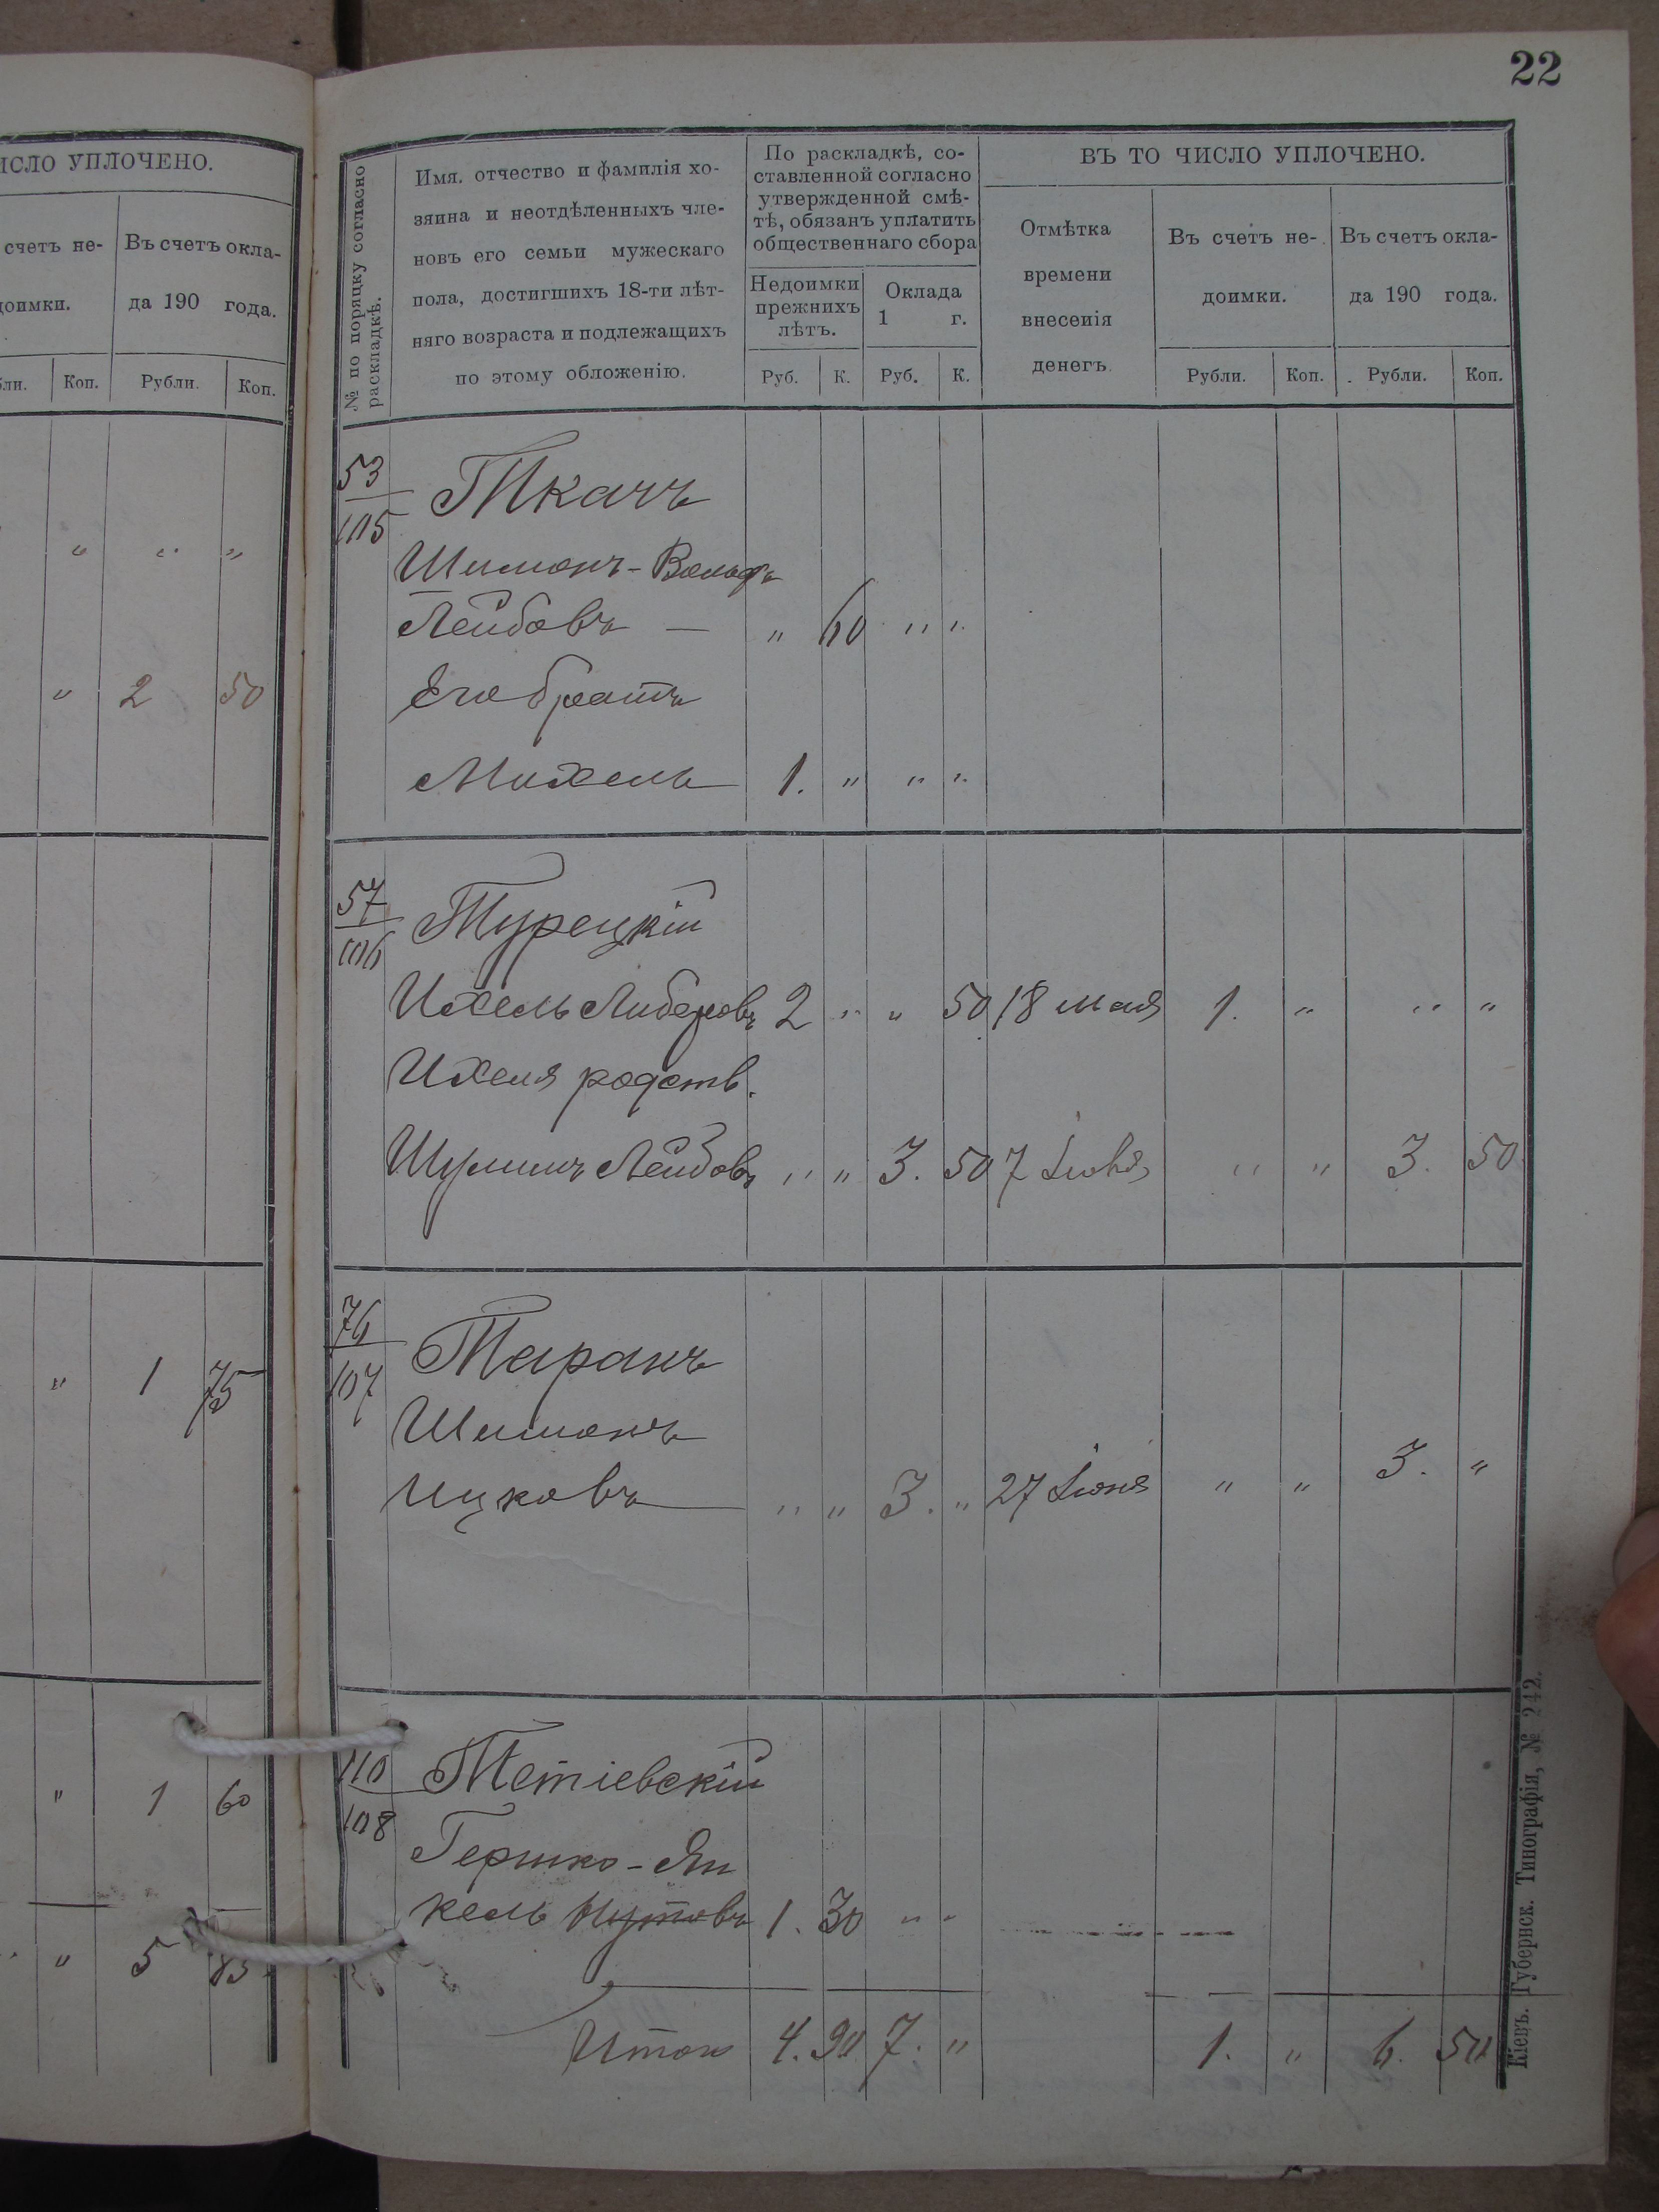 22
ИСЛО УПЛОЧЕНО.
счетъ не-
доимки.
Въ счетъ окла-
да 190 года.
бли. Коп. Рубли. Коп.
" " "
" 2 50
" 1 75
" 1 60
" " 5 85
№ по поряцку согласно
раскладкѣ.
Имя. отчество и фамилія хо-
зяина и неотдѣленныхъ чле-
новъ его семьи мужескаго
пола, достигшихъ 18-ти лѣт-
няго возраста и подлежащихъ
по этому обложенію.
По раскладкѣ, со-
ставленной согласно
утвержденной смѣ-
тѣ, обязанъ уплатить
общественнаго сбора
Недоимки
прежнихъ
лѣтъ.
Оклада
1 г.
Руб. К. Руб. К.
ВЪ ТО ЧИСЛО УПЛОЧЕНО.
Отмѣтка
времени
внесенія
денегъ.
Въ счетъ не-
доимки.
Въ счетъ окла-
да 190 года.
Рубли. Коп. Рубли. Коп.
53
105
Ткачъ
Шимонъ-Вольфъ
Лейбовъ — " 60 " "
Его братъ
Михель 1. " " "
57
106
Турецкій
Ихель Либеровъ 2 " " 50 18 мая 1. " " "
Ихеля родств.
Шулимъ Лейбовъ " " 3. 50 7 " " 3. 50
76
107
Таранъ
Шимонъ
Ицковъ " " 3. " 27 Іюня " " 3. "
110
108
Тетіевскій
Гершко-Ян
кель Нутовъ 1. 30 " "
Итого 4. 90 7. " 1. " 6. 50
Кіевъ. Губернск. Типографія, № 242.